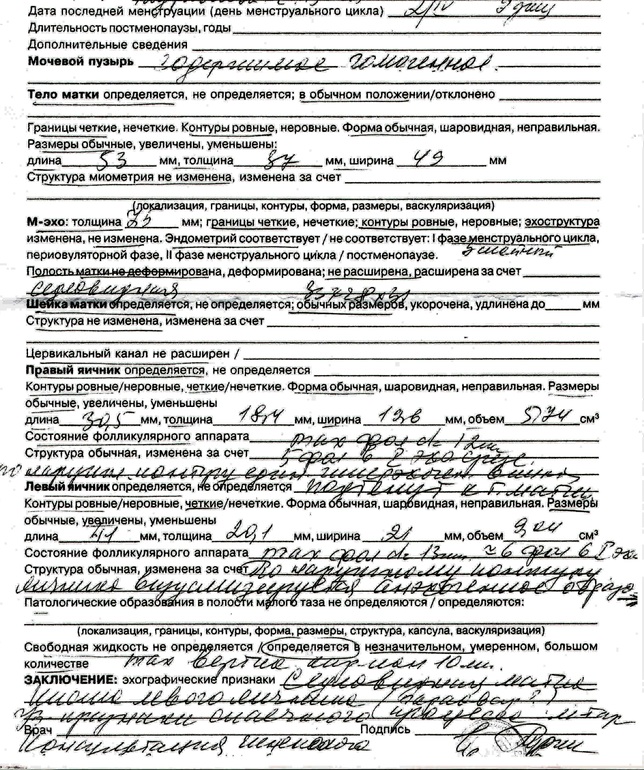 Дата последней менструации (день менструального цикла)
Длительность постменопаузы, годы
Дополнительные сведения
Мочевой пузырь содержимое гомогенное.
Тело матки определяется, не определяется; в обычном положении/отклонено
Границы четкие, нечеткие. Контуры ровные, неровные. Форма обычная, шаровидная, неправильная.
Размеры обычные, увеличены, уменьшены:
длина 53 мм, толщина 37 мм, ширина 49 мм
Структура миометрия не изменена, изменена за счет
(локализация, границы, контуры, форма, размеры, васкуляризация)
М-эхо: толщина мм; границы четкие, нечеткие; контуры ровные, неровные; эхоструктура
изменена, не изменена. Эндометрий соответствует / не соответствует: I фазе менструального цикла,
периовуляторной фазе, II фазе менструального цикла / постменопаузе.
Полость матки не деформирована, деформирована; не расширена, расширена за счет
седловидная
Шейка матки определяется, не определяется; обычных размеров, укорочена, удлинена до мм
Структура не изменена, изменена за счет
Цервикальный канал не расширен /
Правый яичник определяется, не определяется
Контуры ровные/неровные, четкие/нечеткие. Форма обычная, шаровидная, неправильная. Размеры
обычные, увеличены, уменьшены
длина 30,5 мм, толщина 18,4 мм, ширина мм, объем см³
Состояние фолликулярного аппарата max фол d=12мм
Структура обычная, изменена за счет
по наружному контуру
Левый яичник определяется, не определяется
Контуры ровные/неровные, четкие/нечеткие. Форма обычная, шаровидная, неправильная. Размеры
обычные, увеличены, уменьшены
длина 41 мм, толщина 20,1 мм, ширина 21 мм, объем см³
Состояние фолликулярного аппарата max фол d=13мм
Структура обычная, изменена за счет по наружному контуру
яичника визуализируется анэхогенное
Патологические образования в полости малого таза не определяются / определяются:
(локализация, границы, контуры, форма, размеры, структура, капсула, васкуляризация)
Свободная жидкость не определяется / определяется в незначительном, умеренном, большом
количестве max вертик карман 10мм.
ЗАКЛЮЧЕНИЕ: эхографические признаки Седловидная матка
киста левого яичника
признаки спаечного процесса
Врач Подпись
Консультация гинеколога